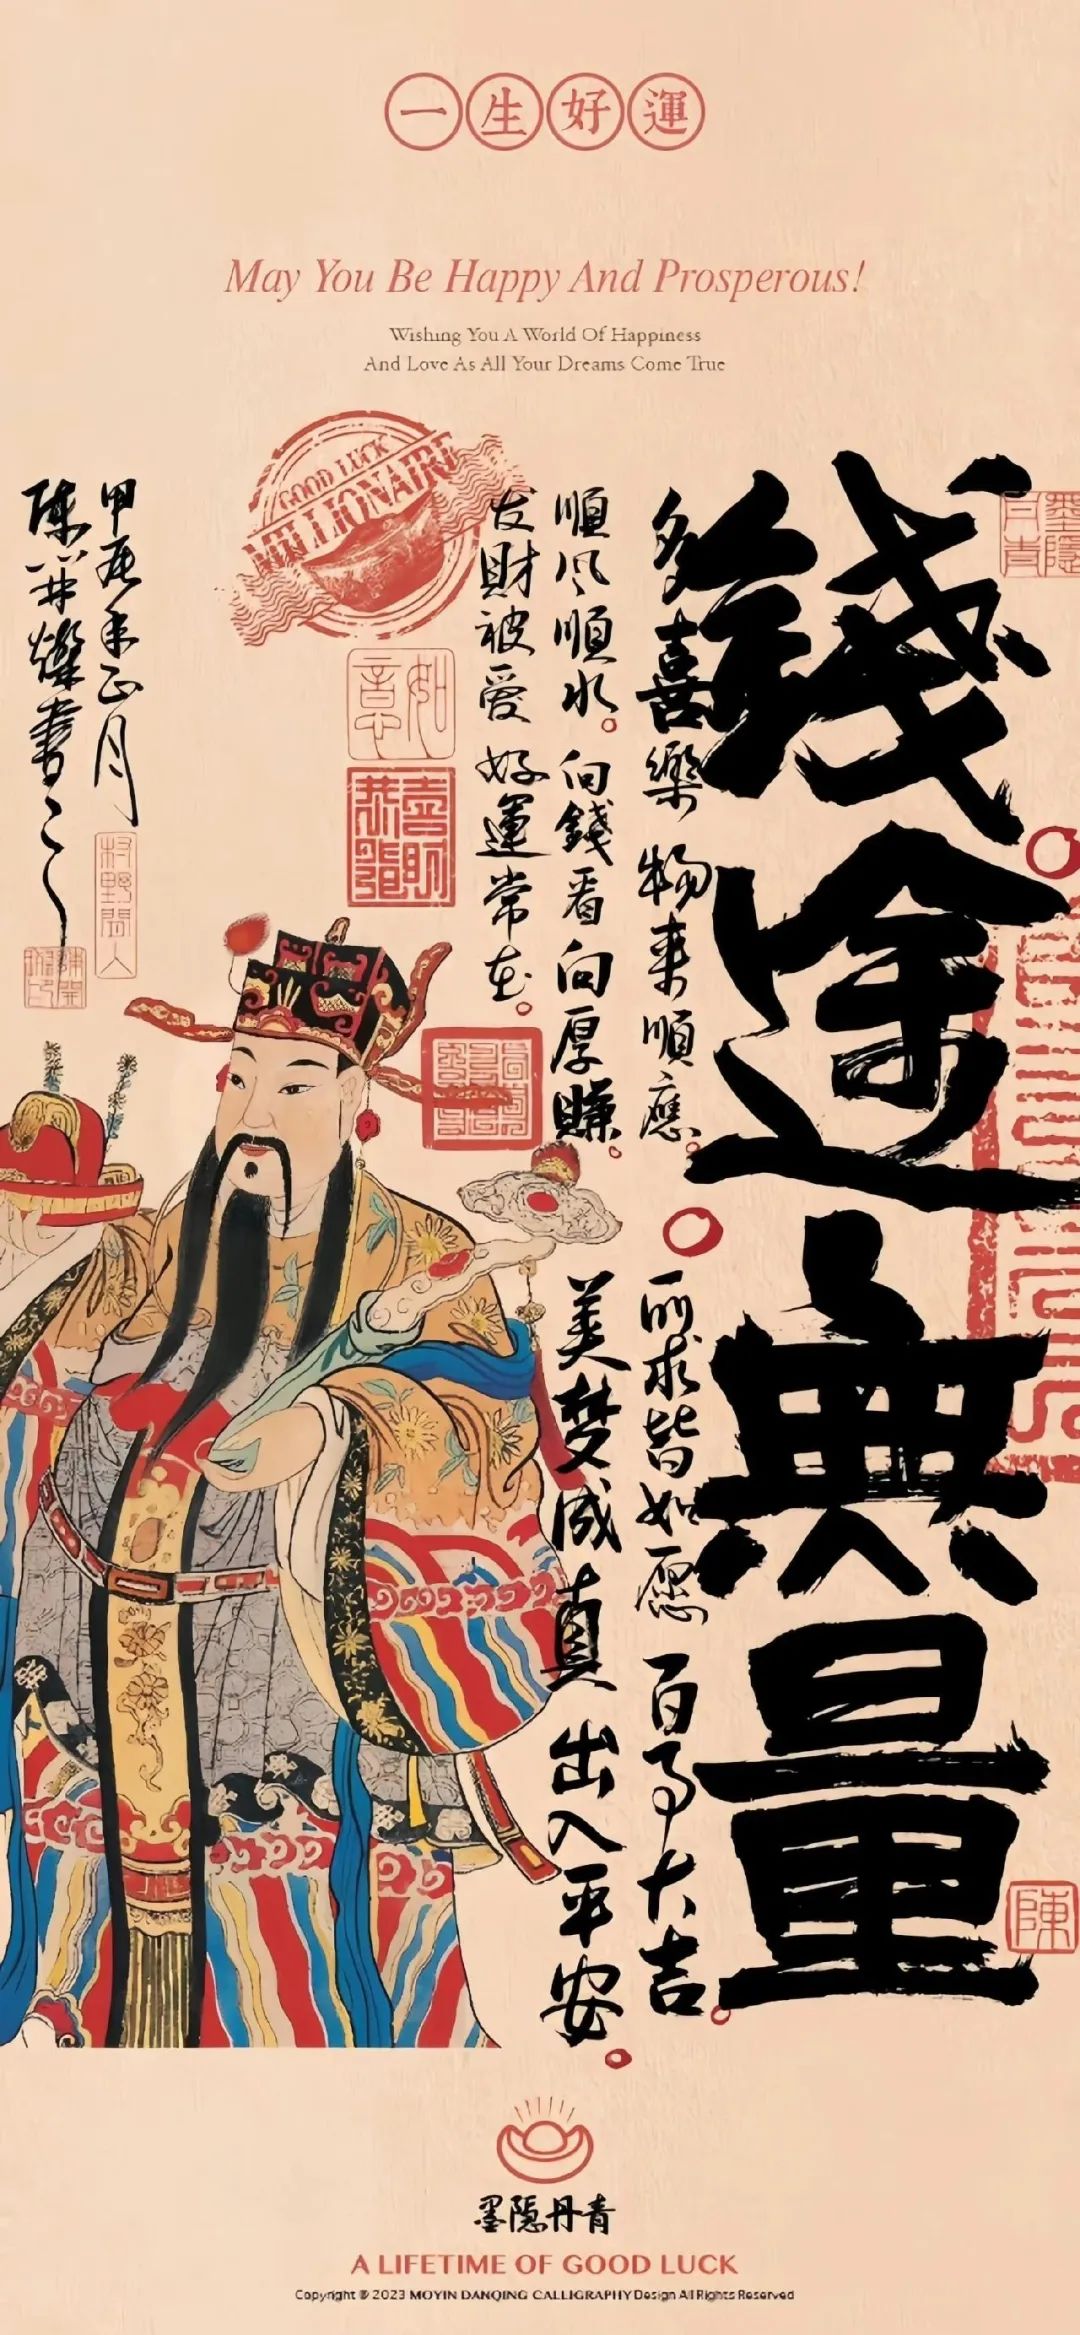 一生好運
May You Be Happy And Prosperous!
Wishing You A World Of Happiness
And Love As All Your Dreams Come True
GOOD LUCK
MILLIONAIRE
錢途無量
多喜樂 物来順應
所求皆如愿 百事大吉
順风順水。向錢看向厚賺
美梦成真 出入平安
发財被爱 好運常在
甲辰年正月
陳䒤燦書
如意
恭喜發財
村野閒人
墨隐丹青
陳
墨隐丹青
A LIFETIME OF GOOD LUCK
Copyright © 2023 MOYIN DANQING CALLIGRAPHY Design All Rights Reserved